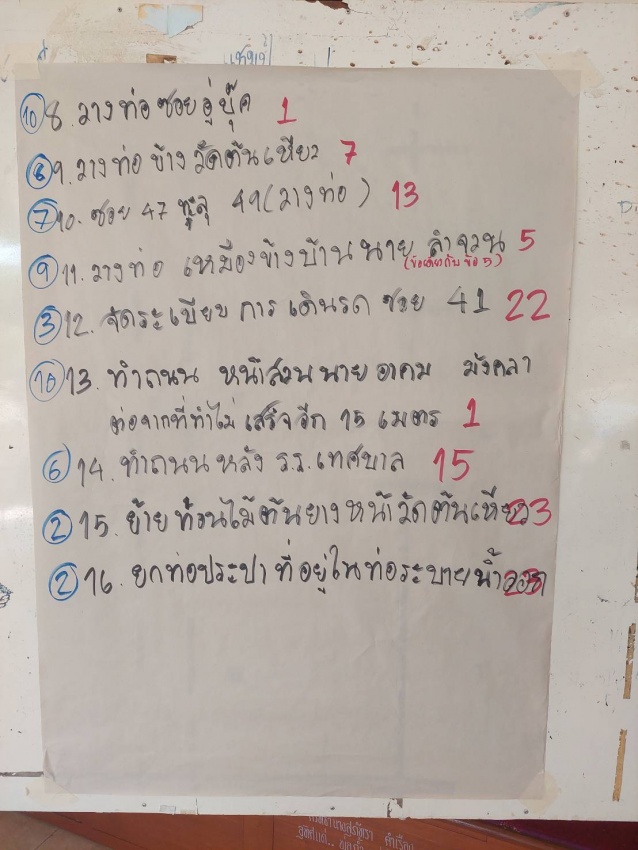 ⑩ 8. วางท่อซอยอู่บุ๊ค 1
⑧ 9. วางท่อข้างวัดต้นเหียว 7
⑦ 10. ซอย 47 ทะลุ 49 (วางท่อ) 13
⑨ 11. วางท่อ เหมืองข้างบ้านนาย ลำจวน 5
(ข้อเดียวกับข้อ 5)
③ 12. จัดระเบียบ การ เดินรถ ซอย 41 22
⑩ 13. ทำถนน หน้าสวนนายอาคม มังคลา
ต่อจากที่ทำไม่เสร็จอีก 15 เมตร 1
⑥ 14. ทำถนนหลัง ร.ร. เทศบาล 15
② 15. ย้ายท่อนไม้ต้นยางหน้าวัดต้นเหียว 23
② 16. ยกท่อประปาที่อยู่ในท่อระบายน้ำออก 23